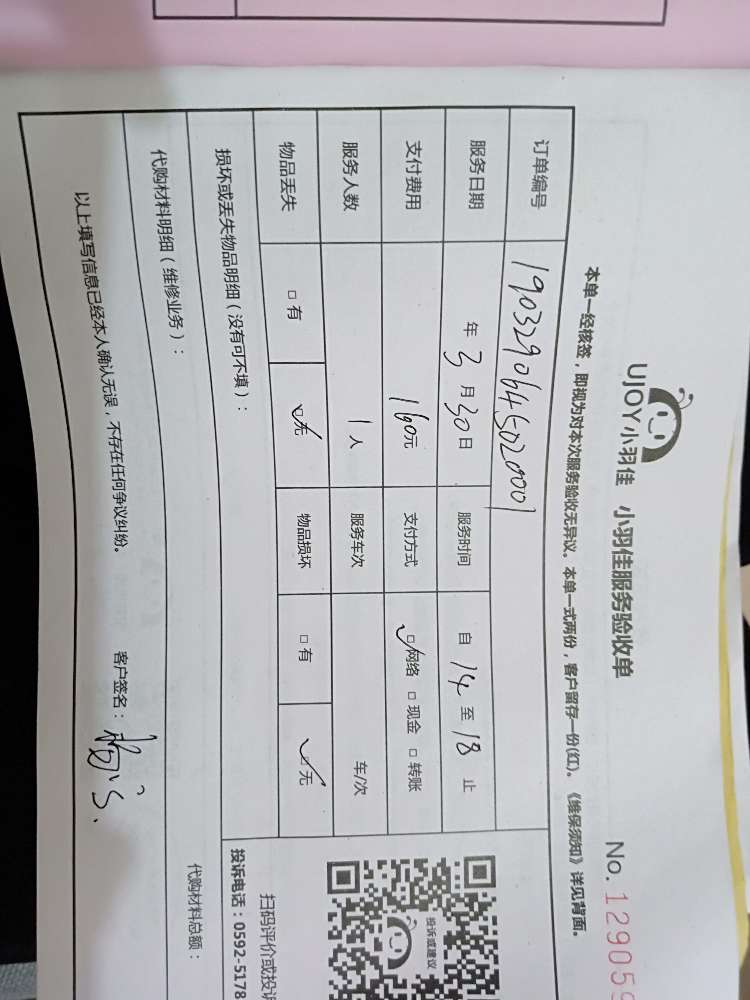 UJOY小羽佳 小羽佳服务验收单
No. 12905
本单一经核签，即视为对本次服务验收无异议。本单一式两份，客户留存一份(红)。《维保须知》详见背面。
订单编号 1903290645020001
服务日期 年 3 月 30 日 服务时间 自 14 至 18 止
支付费用 160元 支付方式 ☑网络 □ 现金 □ 转账
服务人数 1 人 服务车次 车/次
物品丢失 □ 有 ☑无 物品损坏 □ 有 ☑无
损坏或丢失物品明细（没有可不填）：
投诉或建议
扫码评价或投诉
投诉电话：0592-5178
代购材料明细（维修业务）：
代购材料总额：
以上填写信息已经本人确认无误，不存在任何争议纠纷。 客户签名：